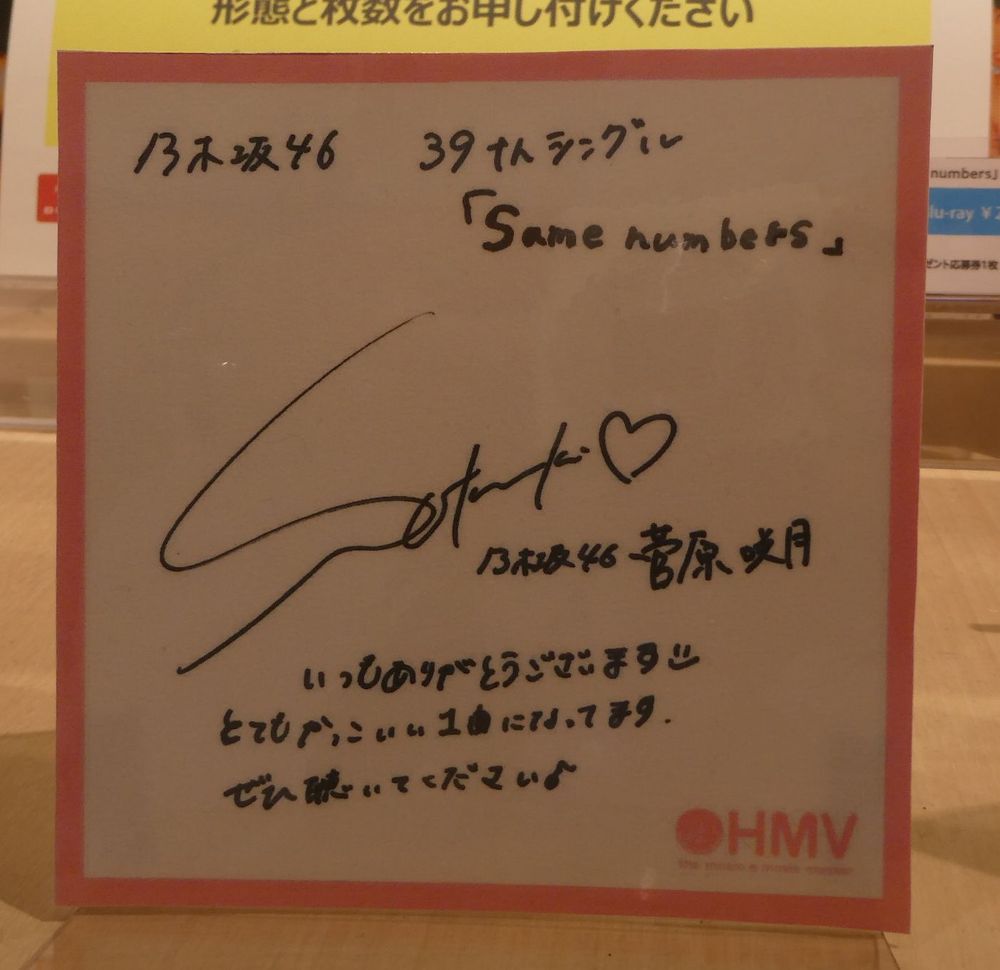 形態と枚数をお申し付けください
乃木坂46 39thシングル
「Same numbers」
numbers」
lu-ray ¥2
ゼント応募券1枚
Satsuki♡
乃木坂46 菅原咲月
いつもありがとうございます
とてもかっこいい1曲になってます.
ぜひ聴いてください♪
HMV